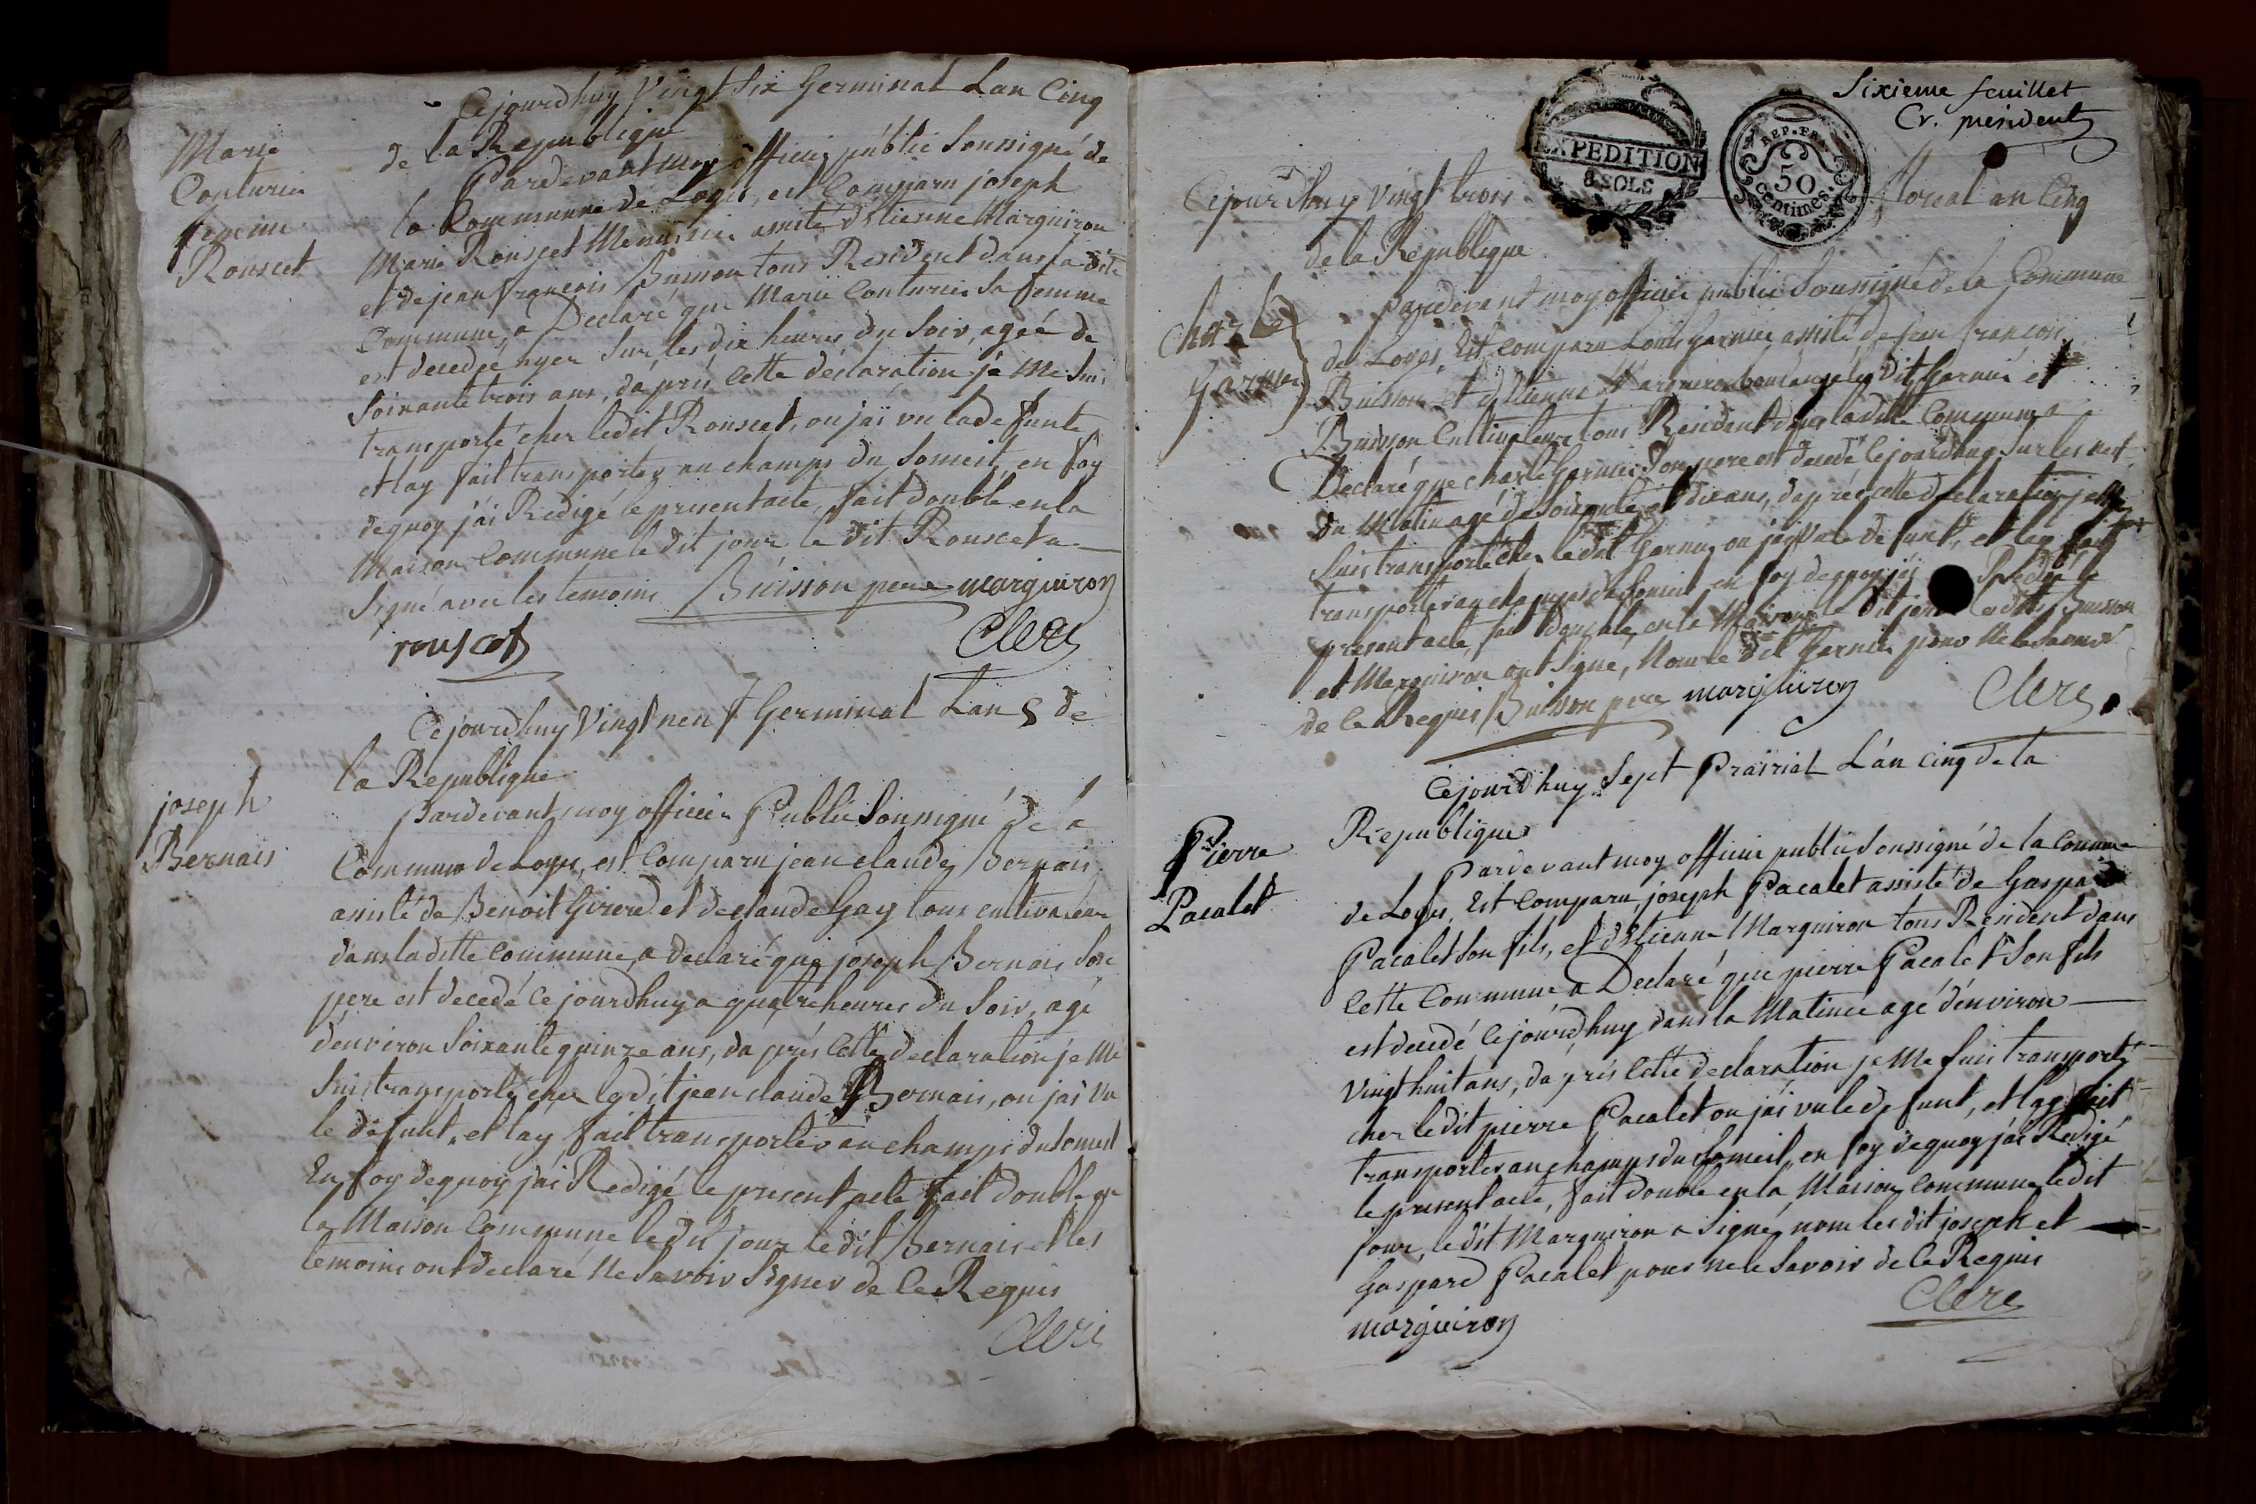 Cejourdhuy Vingt Six Germinal Lan Cinq
de la Republique
Marie
Couturier
femme
Rouscet
Pardevant moy officier públic Soussigné de
la Commune de Loyes, est Comparu joseph
Marie Rouscet Menuisier assisté d'Etienne Marguiron
et de jean françois Buisson tous Resident dans la dite
Commune, a Declaré que Marie Couturier Sa femme
est decedée hyer Sur les dix heures du Soir, ageé de
Soixante trois ans, dáprés Cette déclaration jé Me Suis
transporté chez ledit Rouscet, ou jaï vu la defunte,
et lay fait transporter au champs du Someil, en foy
dequoy j'ai Redigé le present acte, fait double en la
Maison Commune le dit jour le dit Rouscet a
Signé avec les temoins Buisson pere marguiron
rouscet Clerc
Cejourdhuy Vingt neuf Germinal Lan 5 de
la Republique
joseph
Bernais
Pardevant moy officier Public Soussigné dé la
Commune de Loyes, est Comparu jean claude Bernais
assisté de Benoit Girerd et de claude Gay tous cultivateur
dans la ditte Commune, a declaré que joseph Bernais Son
pere est decedé Ce jourdhuy a quatre heures du Soir, agé
d'environ Soixante quinze ans, da prés Cette declaration je Me
Suis transporté chez le dit jean claude Bernais, ou jai vu
le défunt, et lay fait transporter au champs du Someil
En foy dequoy jái Redigé le present acte fait double en
la Maison Commune le dit jour le dit Bernais et les
temoins ont declaré Ne Savoir Signer de Ce Requis
Clerc
Sixieme feuillet
Cr. président
EXPEDITION
8 SOLS
REP. FRA.
50
Centimes
Cejourdhuy Vingt trois floreal an Cinq
de la République
Charle
Garnier
Pardevant moy officier public Soussigné de la Commune
de Loyes, Est Comparu Louis Garnier, assisté de jean françois
Buisson et d'Etienne Marguiron dit Garnier et
Buisson Cultivateur tous Resident dans la dite Commune a
Declaré que charle Garnier Son pere est decedé Cejourdhuy Sur les
du Matin agé de Soixante et dix ans, da prés cette declaration je Me
Suis transporté chez le dit Garnier, ou jay Vu le defunt, et lay fait
transporter au champs du Someil en foy dequoy jái Redigé le
present acte, fait double en la Maison le dit jour Les dits Buisson
et Marguiron ont Signé, Non le dit Garnier pour Ne le Savoir
de Ce Requis Buisson pere marguiron Clerc
Cejourdhuy Sept Prairial Lán Cinq de la
Republique
Pierre
Pacalet
Pardevant moy officier public Soussigné de la Commune
de Loyes, Est Comparu joseph Pacalet assisté de Gaspard
Pacalet Son fils, et d'Etienne Marguiron tous Resident dans
Cette Commune, a Declaré que pierre Pacalet Son fils
est decedé Cejourdhuy dans la Matinée agé d'environ
Vingt huit ans, da prés Cette declaration je Me Suis transporté
chez le dit pierre Pacalet ou jái vu le defunt, et lay fait
transporter au champs du Someil, en foy dequoy jái Redigé
le present acte, fait double en la Maison Commune le dit
jour, le dit Marguiron a Signé, non les dit joseph et
Gaspard Pacalet pour ne le Savoir de Ce Requis
Clerc
marguiron